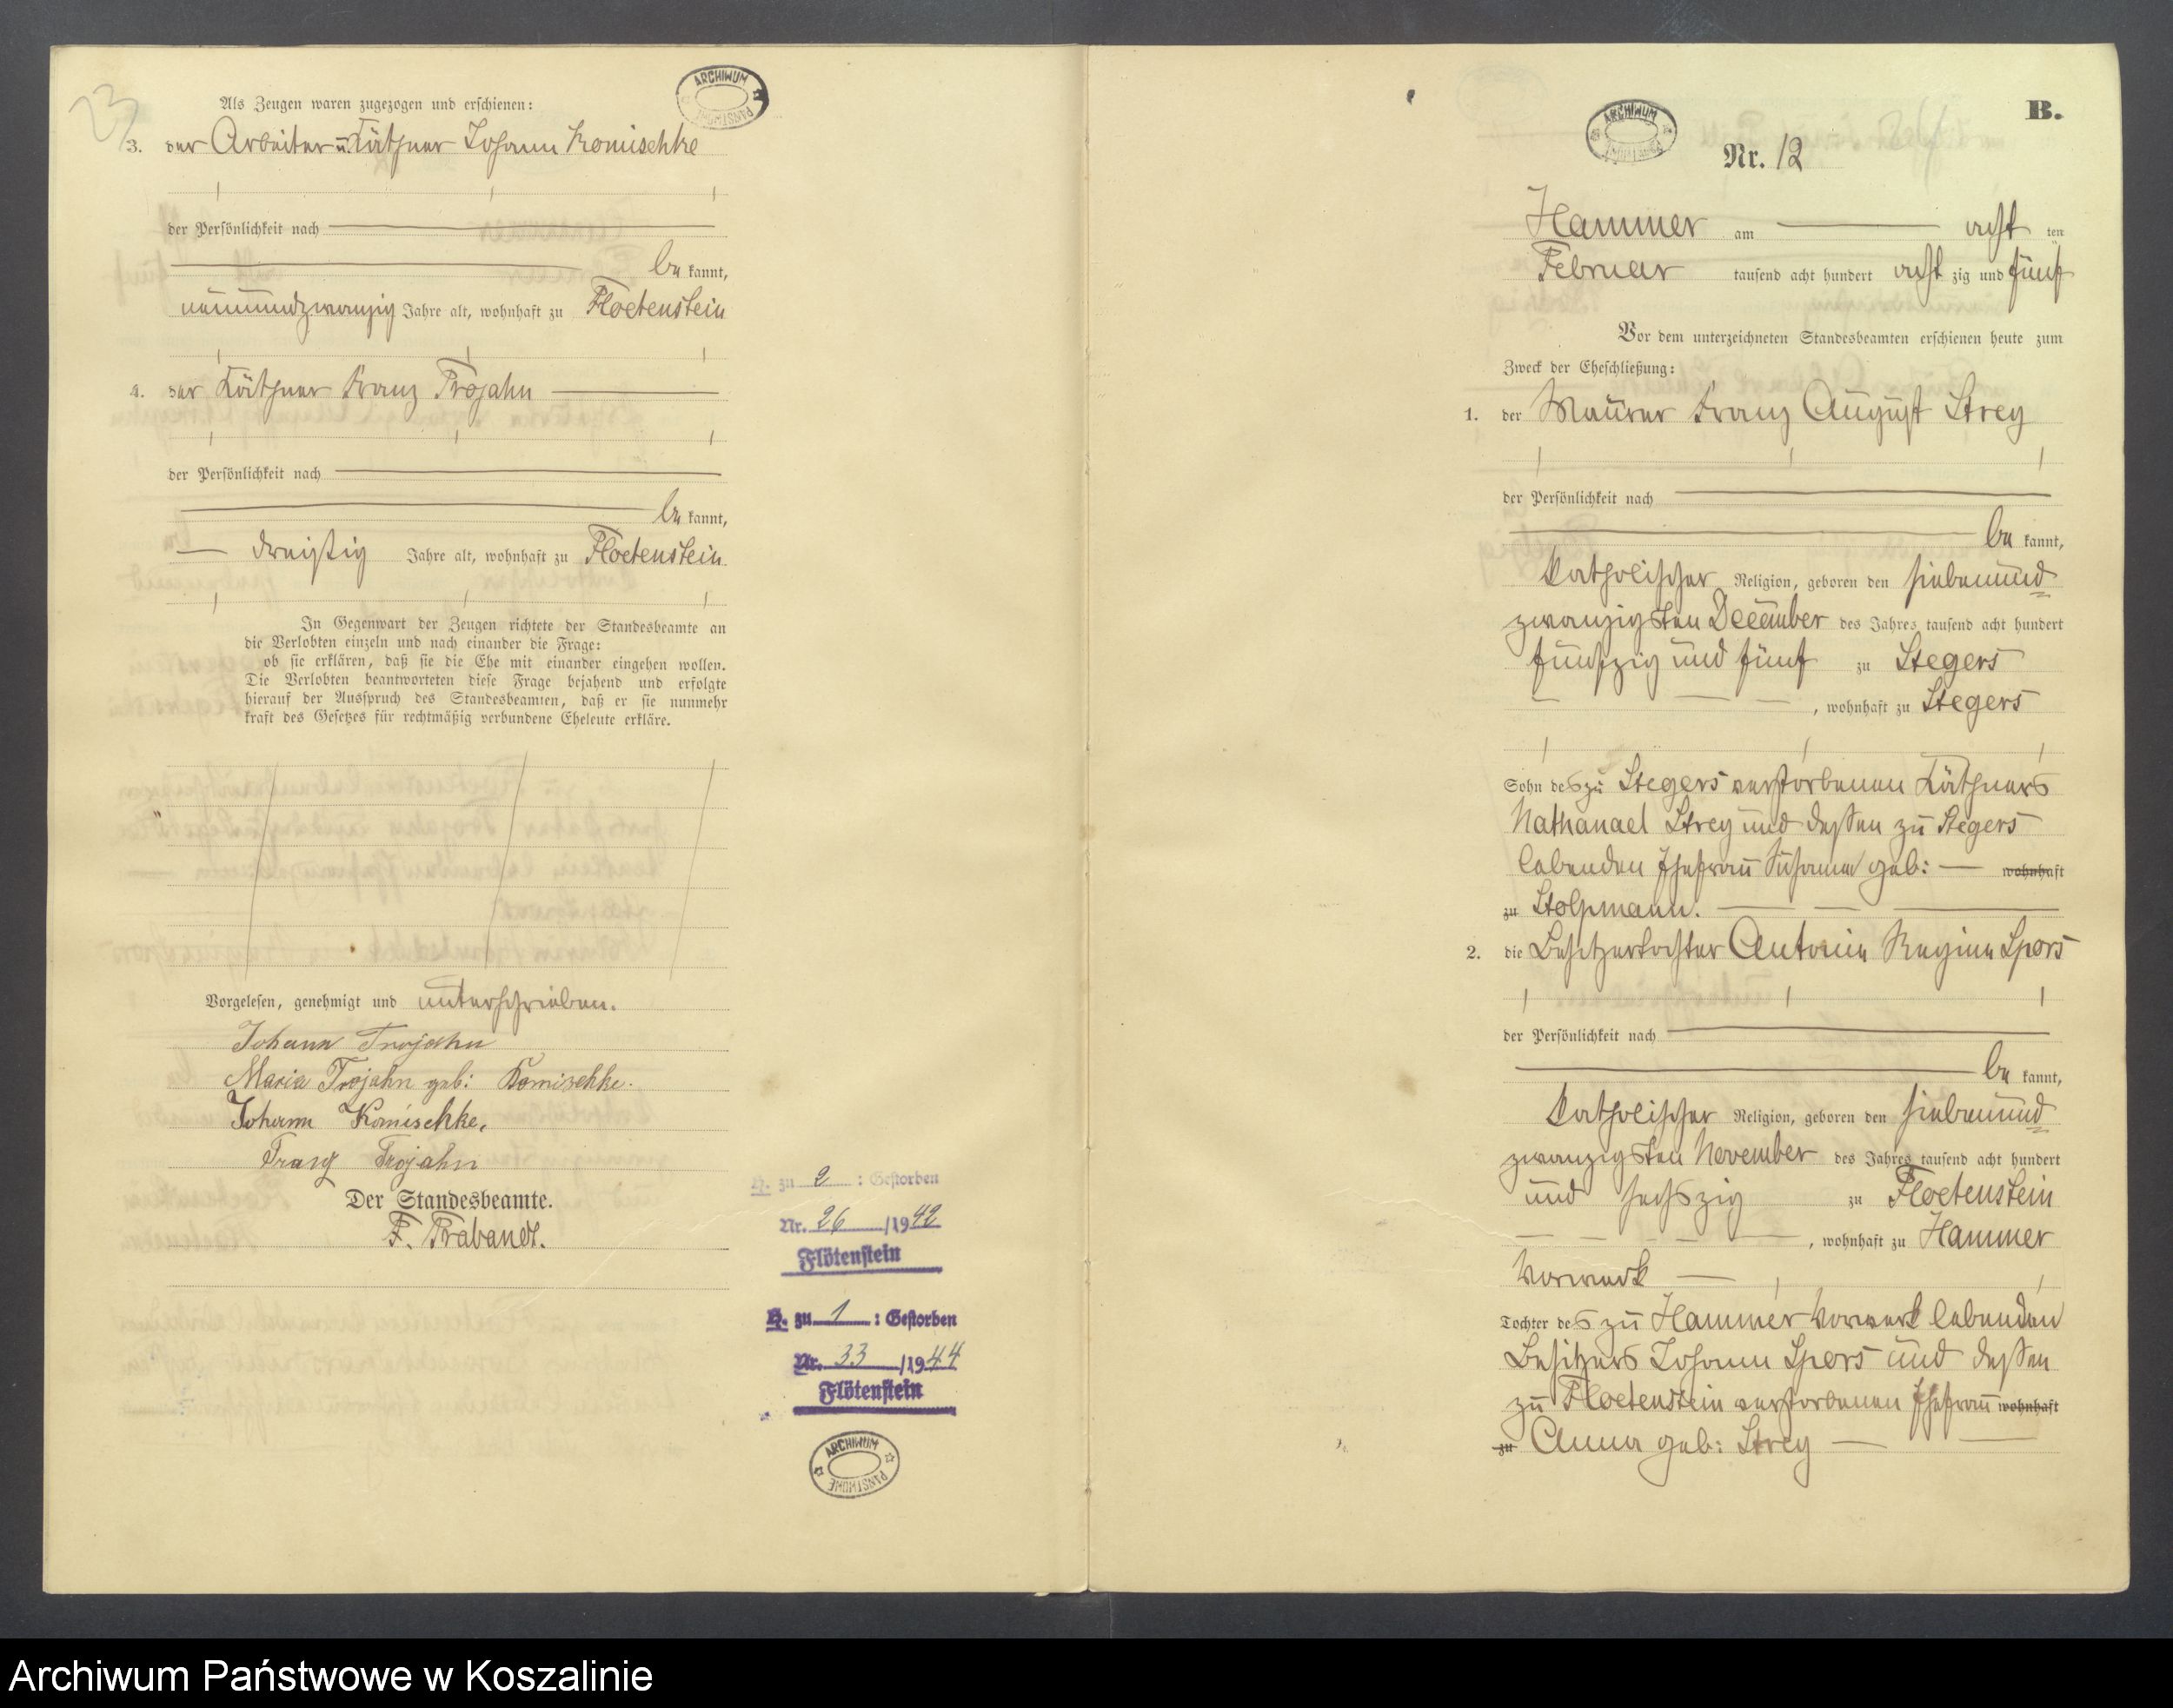 23
ARCHIWUM PAŃSTWOWE
Als Zeugen waren zugezogen und erschienen:
3. der Arbeiter u. Käthner Johann Komischke
der Persönlichkeit nach
be kannt,
neunundzwanzig Jahre alt, wohnhaft zu Floetenstein
4. der Käthner Franz Trojahn
der Persönlichkeit nach
be kannt,
dreißig Jahre alt, wohnhaft zu Floetenstein
In Gegenwart der Zeugen richtete der Standesbeamte an
die Verlobten einzeln und nach einander die Frage:
ob sie erklären, daß sie die Ehe mit einander eingehen wollen.
Die Verlobten beantworteten diese Frage bejahend und erfolgte
hierauf der Ausspruch des Standesbeamten, daß er sie nunmehr
kraft des Gesetzes für rechtmäßig verbundene Eheleute erkläre.
Vorgelesen, genehmigt und unterschrieben.
Johann Trojahn
Maria Trojahn geb: Komischke.
Johann Komischke.
Franz Trojahn
Der Standesbeamte.
F. Prabandt.
H. zu 2 : Gestorben
Nr. 26 /1942
Flötenstein
H. zu 1 : Gestorben
Nr. 33 /1944
Flötenstein
ARCHIWUM PAŃSTWOWE
ARCHIWUM PAŃSTWOWE
B.
Nr. 12
Hammer am acht ten
Februar tausend acht hundert acht zig und fünf
Vor dem unterzeichneten Standesbeamten erschienen heute zum
Zweck der Eheschließung:
1. der Maurer Franz August Strey
der Persönlichkeit nach
be kannt,
katholischer Religion, geboren den siebenund
zwanzigsten December des Jahres tausend acht hundert
fünfzig und fünf zu Stegers
, wohnhaft zu Stegers
Sohn des zu Stegers verstorbenen Käthners
Nathanael Strey und dessen zu Stegers
lebenden Ehefrau Susanna geb: wohnhaft
zu Stolpmann.
2. die Besitzertochter Antonie Regine Spors
der Persönlichkeit nach
be kannt,
katholischer Religion, geboren den siebenund
zwanzigsten November des Jahres tausend acht hundert
und sechszig zu Floetenstein
, wohnhaft zu Hammer
Vorwerk
Tochter des zu Hammer Vorwerk lebenden
Besitzers Johann Spors und dessen
zu Floetenstein verstorbenen Ehefrau wohnhaft
zu Anna geb: Strey
Archiwum Państwowe w Koszalinie